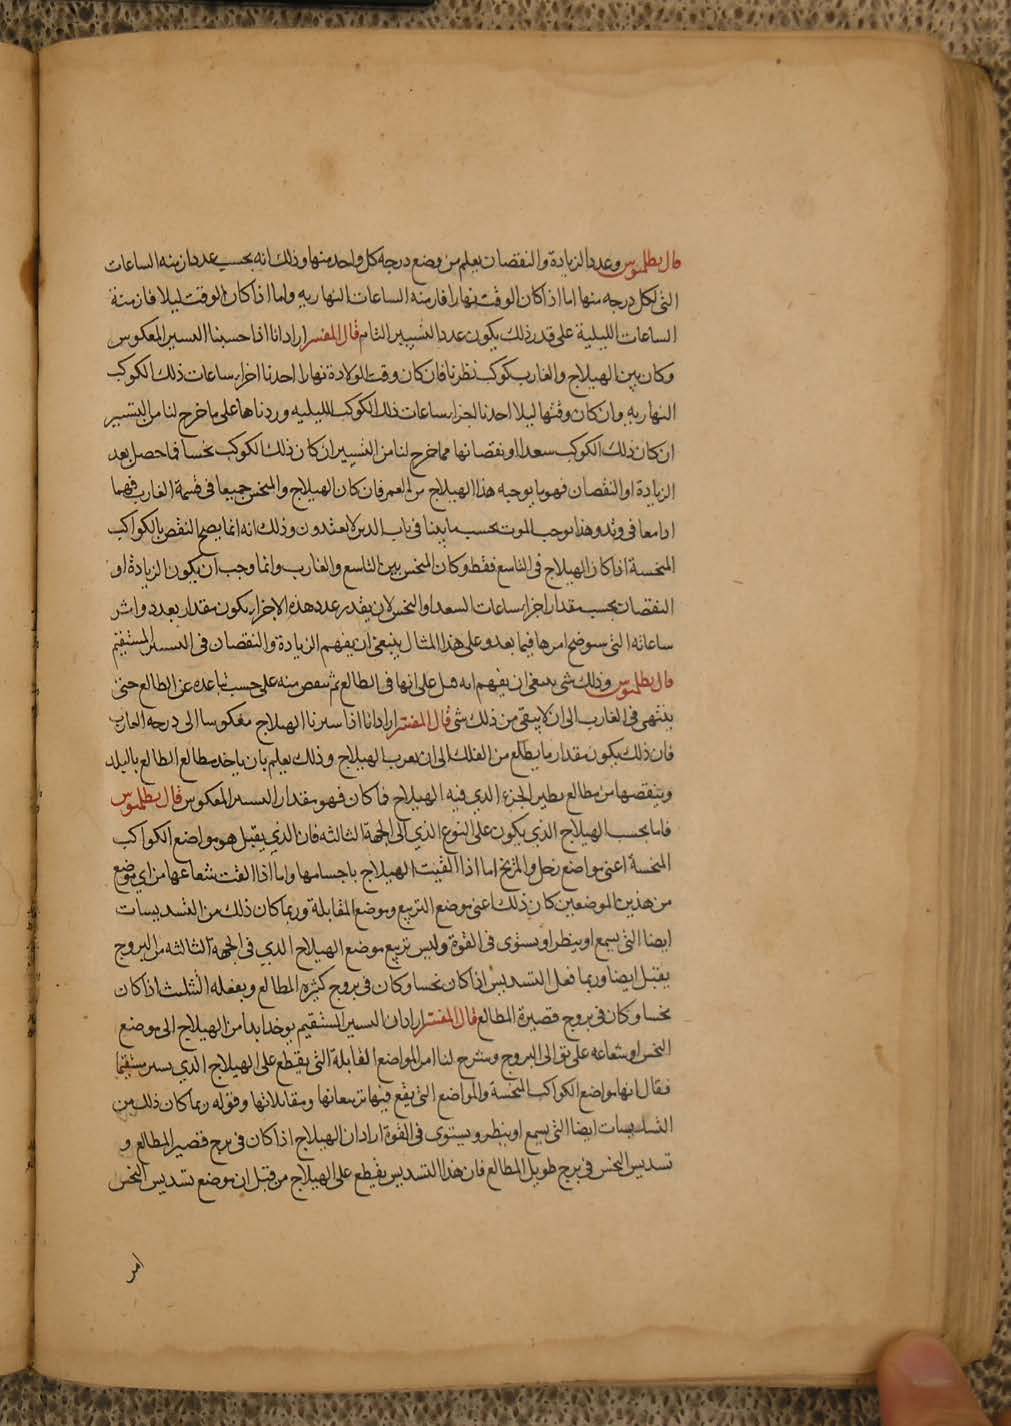 قال بطلميوس وعدد الزيادة والنقصان يعلم من وضع درجه كل واحد منها وذلك انه بحسب عدد ازمنه الساعات
التى لكل درجه منها اما اذا كان الوقت نهارا فازمنه الساعات النهاريه واما اذا كان الوقت ليلا فازمنة
الساعات الليلية على قدر ذلك يكون عدد التسيير التام قال المفسر اراد انا اذا حسبنا التسيير المعكوس
وكان بين الهيلاج والغارب كوكب نظرنا فان كان وقت الولادة نهارا اخذنا اجزاء ساعات ذلك الكوكب
النهاريه وان كان وقتها ليلا اخذنا اجزاء ساعات ذلك الكوكب الليليه وزدناها على ما خرج لنا من التسيير
ان كان ذلك الكوكب سعدا او نقصانها مما خرج لنا من التسيير ان كان ذلك الكوكب نحسا فما حصل بعد
الزيادة او النقصان فهو ما يوجبه هذا الهيلاج من العمر فان كان الهيلاج والمنحس جميعا فى قسمة الغارب فهما
اذا معا فى وتد وهذا يوجب الموت بحسب ما بينا فى باب الذين لا يغتذون وذلك انه انما يصح النقص بالكواكب
المنحسة اذا كان الهيلاج فى التاسع فقط وكان المنحس بين التاسع والغارب وانما وجب ان يكون الزيادة او
النقصان بحسب مقدار اجزاء ساعات السعد او النحس لان بقدر عدد هذه الاجزاء يكون مقدار بعد دوائر
ساعاته التى سنوضح امرها فيما بعد وعلى هذا المثال ينبغى ان يفهم الزيادة والنقصان فى التسيير المستقيم
قال بطلميوس وذلك شى ينبغى ان يفهم انه قيل على انها فى الطالع ثم ينقص منه على حسب تباعده عن الطالع حتى
ينتهى فى الغارب الى ان لا يبقى من ذلك شى قال المفسر اراد انا اذا سيرنا الهيلاج معكوسا الى درجه الغارب
فان ذلك يكون مقدار ما يطلع من الفلك الى ان يغرب الهيلاج وذلك يعلم بان ياخذ مطالع الطالع بالبلد
وينقصها من مطالع نظير الجزء الذي فيه الهيلاج فما كان فهو مقدار التسيير المعكوس قال بطلميوس
فاما بحسب الهيلاج الذي يكون على النوع الذي الى الجهة الثالثه فان الذي يقتل هو مواضع الكواكب
المنحسة اعنى مواضع زحل والمريخ اما اذا القيت الهيلاج باجسامها واما اذا القت شعاعها من اي موضع
من هذين الموضعين كان ذلك اعنى موضع التربيع وموضع المقابلة وربما كان ذلك من التسديسات
ايضا التى يسمع او ينظر او يستوى فى القوة وليس تربيع موضع الهيلاج الذي فى الجهة الثالثه من البروج
يقتل ايضا وربما فعل التسديس اذا كان نحسا وكان فى بروج كثيره المطالع ويفعله التثليث اذا كان
نحسا وكان فى بروج قصيرة المطالع قال المفسر اراد ان التسيير المستقيم يوخذ ابدا من الهيلاج الى موضع
النحس او شعاعه على توالى البروج وشرح لنا امر المواضع القابلة التى يقطع على الهيلاج الذي يسير مستقيما
فقال انها مواضع الكواكب المنحسة والمواضع التى يقع فيها تربيعاتها ومقابلاتها وقوله ربما كان ذلك من
التسديسات ايضا التى يسمع او ينظر ويستوى فى القوة اراد ان الهيلاج اذا كان فى برج قصير المطالع و
تسديس النحس فى برج طويل المطالع فان هذا التسديس يقطع على الهيلاج من قبل ان موضع تسديس النحس